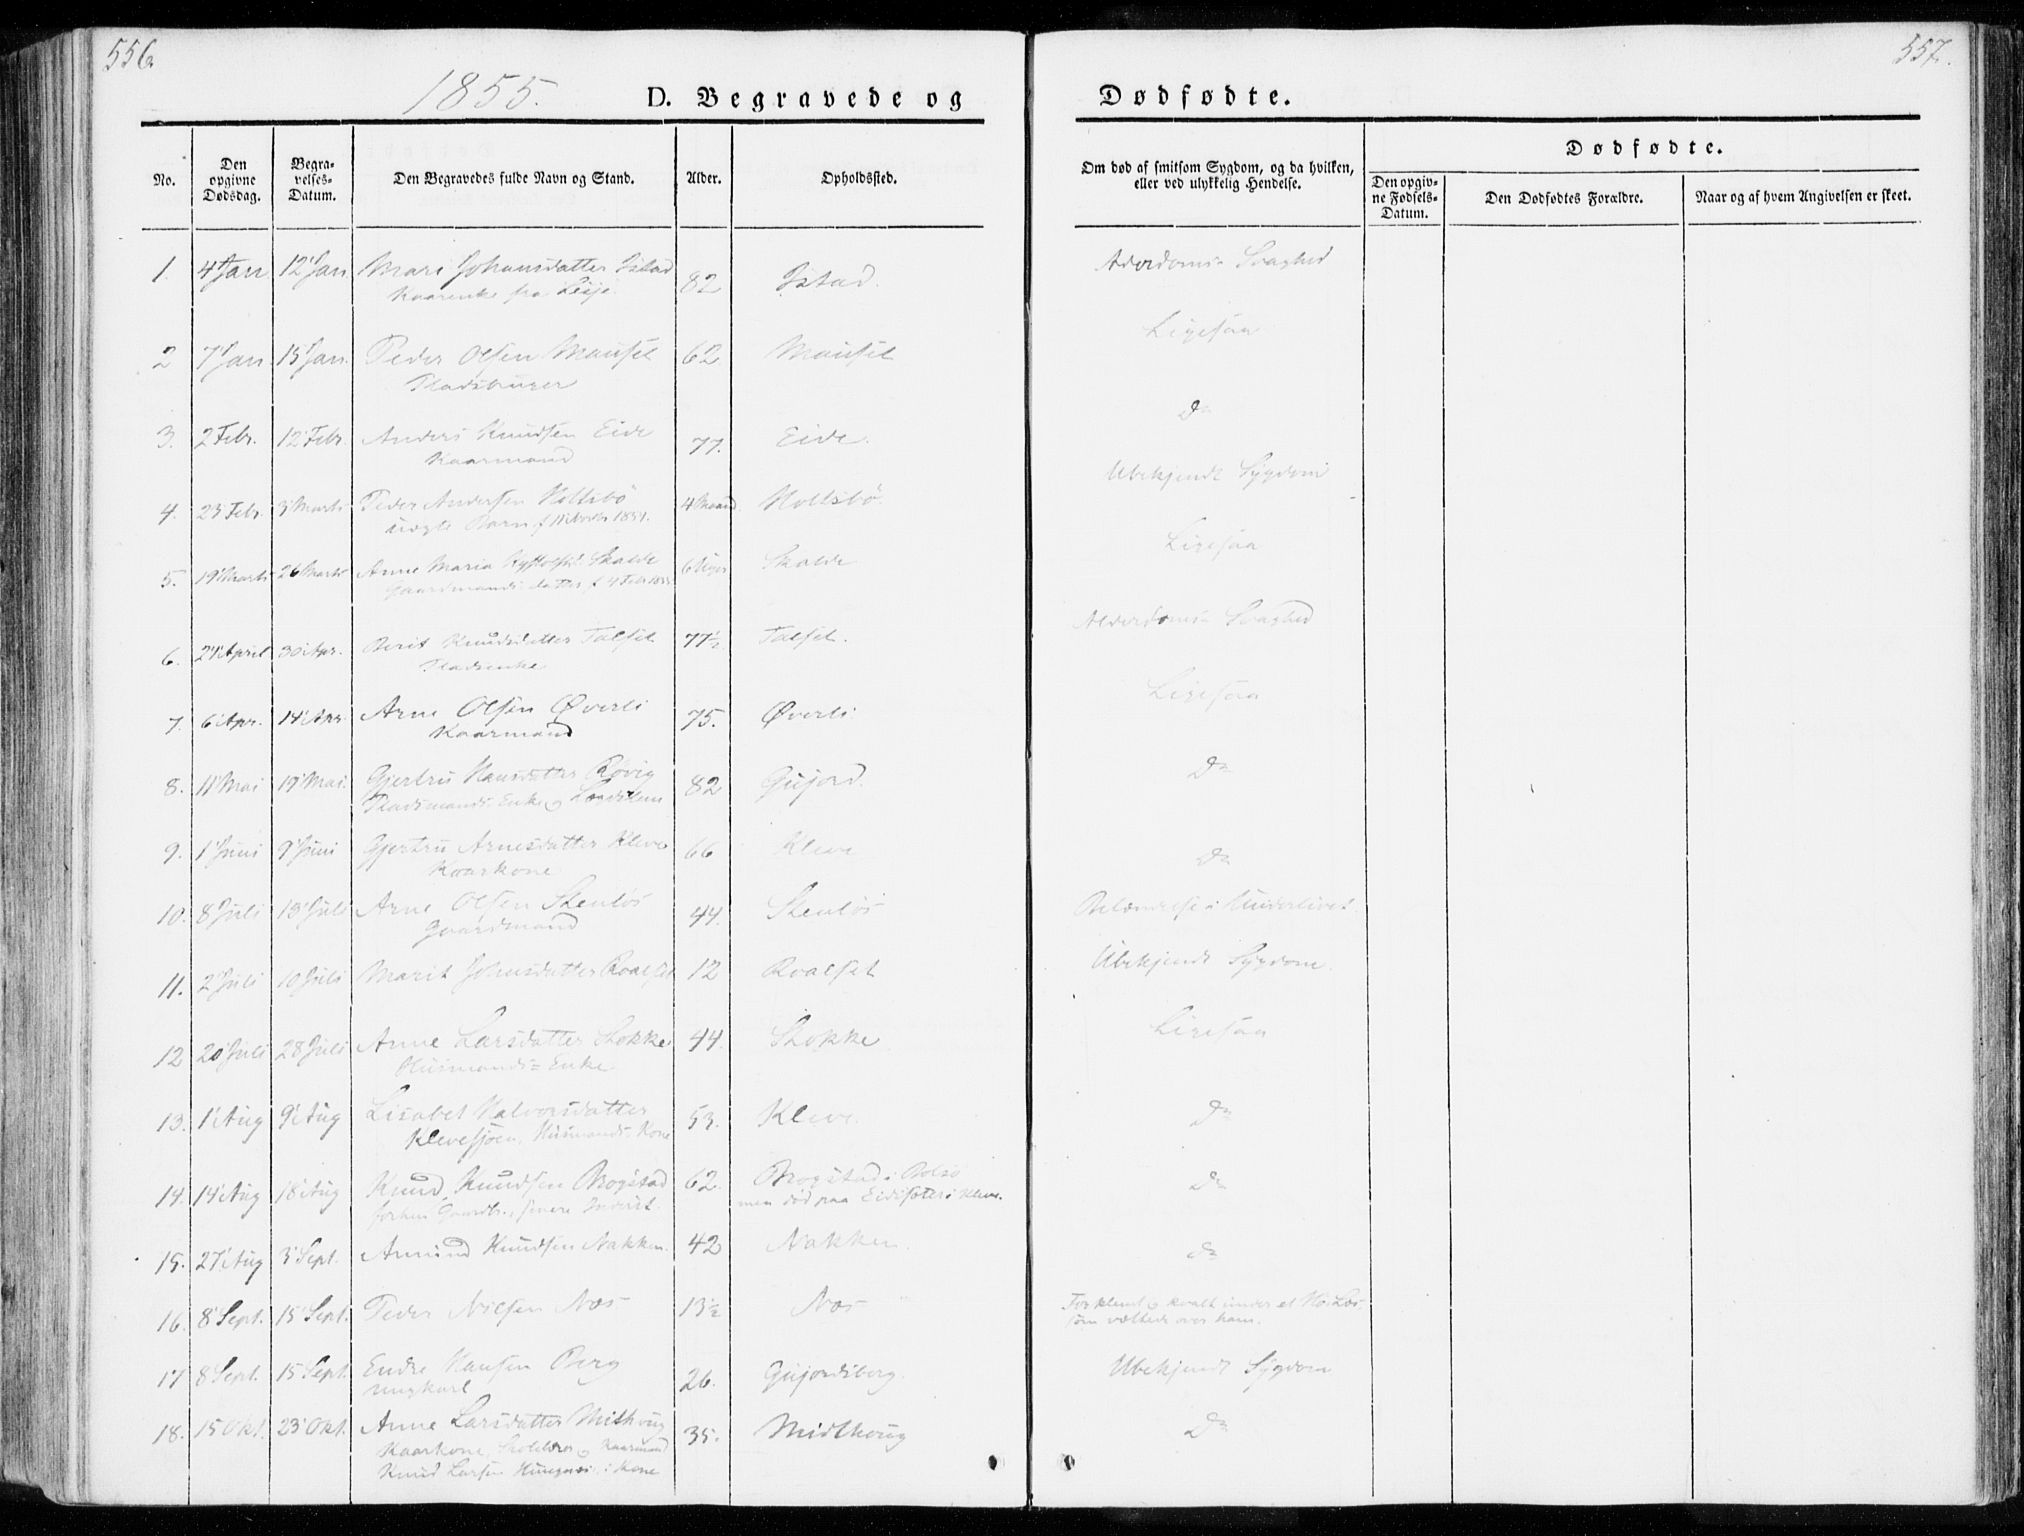 556.
557.
1855.
D. Begravede og
Dødfødte.
No.
Den opgivne Dødsdag.
Begravelses-Datum.
Den Begravedes fulde Navn og Stand.
Alder.
Opholdssted.
Om død af smitsom Sygdom, og da hvilken,
eller ved ulykkelig Hendelse.
Dødfødte.
Den opgivne Fødsels-Datum.
Den Dødfødtes Forældre.
Naar og af hvem Angivelsen er skeet.
1. 4 Jan 12 Jan. Mari Johansdatter Istad 82 Istad. Alderdoms Svaghed
Kaarenke fra Lesje
2 7 Jan 15 Jan. Peder Olsen Mausel 62 Mausel Ligesaa
Pladsbruger
3. 2 Febr. 12 Febr. Anders Knudsen Eide 77. Eide. Do
Kaarmand
4. 23 Febr. 3 Marts Peder Andersen Holtsbø 4 Maaned. Holtsbø Ubekjendt Sygdom
uægte Barn f. 1854.
5. 19 Marts 26 Marts Anne Maria Skalde 6 Uger Skalde Ligesaa
Gaardmands datter f 4 Feb 1855
6. 24 April 30 Apr. Berit Knudsdatter Talset 77½ Talset. Alderdoms Svaghed
Pladsenke
7. 6 Apr. 14 Apr. Arne Olsen Øverli 75. Øverli Ligesaa
Kaarmand
8. 11 Mai 19 Mai. Gjertru Hansdatter Røvig 82 Gujord. Do
Pladsmands Enke og Lægdslem
9. 1 Juni 9 Juni Gjertru Arnesdatter Kleve 66 Kleve Do
Kaarkone
10. 8 Juli 13 Juli Arne Olsen Stenløs 44. Stenløs Betændelse i Underlivet.
Gaardmand
11. 2 Juli 10 Juli Marit Johnsdatter Kvalset 12 Kvalset Ubekjendt Sygdom.
12 20 Juli 28 Juli Anne Larsdatter Stokke 44. Stokke Ligesaa
Husmands=Enke
13. 1 Aug 9 Aug Lisabet Halvorsdatter 53. Kleve. Do
Klevesjøen, Husmands Kone
14. 14 Aug 18 Aug Knud Knudsen Mogstad 62. Mogstad i Bolsø Do
forhen Gaardbr., senere Inderst. men død paa Eidsæter i Kleve.
15. 27 Aug 3 Sept. Amund Knudsen Nakken. 42 Nakken. Do
16. 8 Sept. 15 Sept. Peder Nielsen Næs 13½ Næs Forklemt og kvalt under et Hø-Læs
som væltede over ham.
17 8 Sept. 15 Sept. Endre Hansen Berg 26. Gujordsberg. Ubekjendt Sygdom
ungkarl
18. 15 Okt. 23 Okt. Anne Larsdatter Mithoug 35. Midthoug Do
Kaarkone, Skolelærer og Kaarmand
Knud Larsen Kone